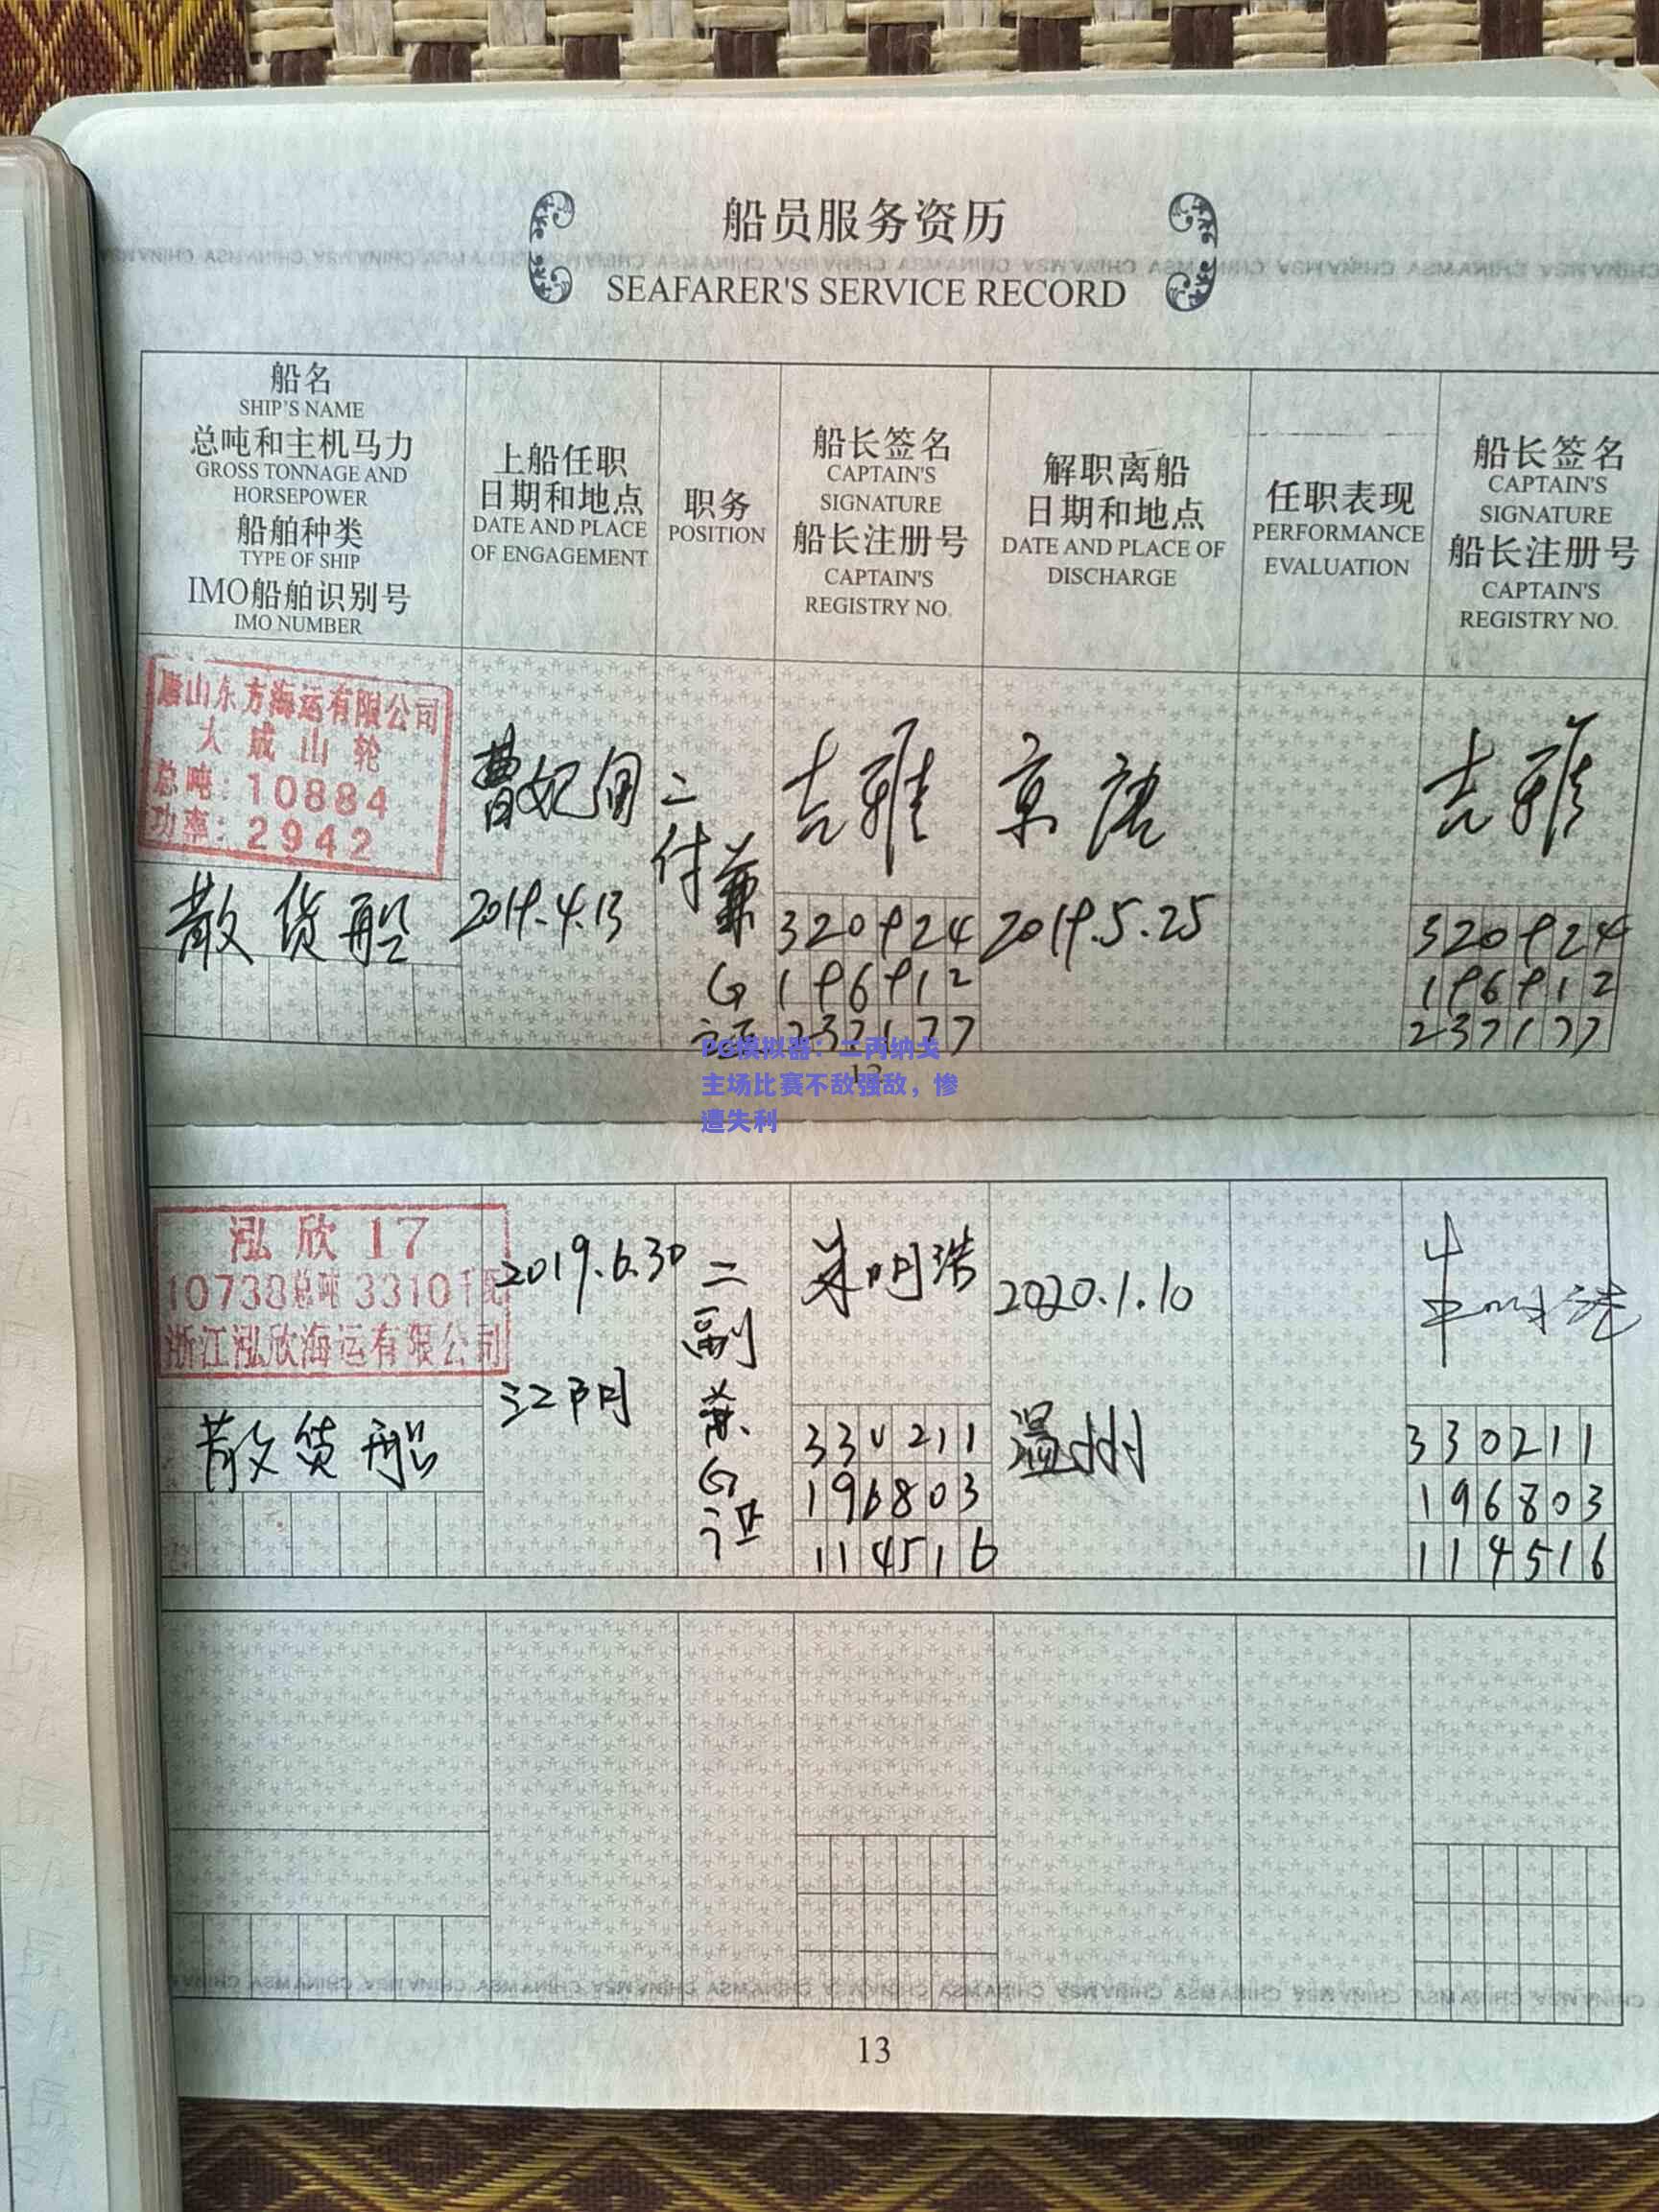 船员服务资历
SEAFARER'S SERVICE RECORD
船名
SHIP'S NAME
总吨和主机马力
GROSS TONNAGE AND
HORSEPOWER
船舶种类
TYPE OF SHIP
IMO船舶识别号
IMO NUMBER
上船任职
日期和地点
DATE AND PLACE
OF ENGAGEMENT
职务
POSITION
船长签名
CAPTAIN'S
SIGNATURE
船长注册号
CAPTAIN'S
REGISTRY NO.
解职离船
日期和地点
DATE AND PLACE OF
DISCHARGE
任职表现
PERFORMANCE
EVALUATION
船长签名
CAPTAIN'S
SIGNATURE
船长注册号
CAPTAIN'S
REGISTRY NO.
唐山东方海运有限公司
大成山轮
总吨：10884
功率：2942
散货船
曹妃甸
2019.4.13
二
付兼
G
证
吉雅
320924
196912
237177
京唐
2019.5.25
吉雅
320924
196912
237177
12
PG模拟器：二丙纳戈
主场比赛不敌强敌，惨
遭失利
泓欣17
10738总吨 3310千瓦
浙江泓欣海运有限公司
散货船
2019.6.30
江阴
二
副
兼
G
证
明浩
330211
196803
114516
2020.1.10
温州
330211
196803
114516
13